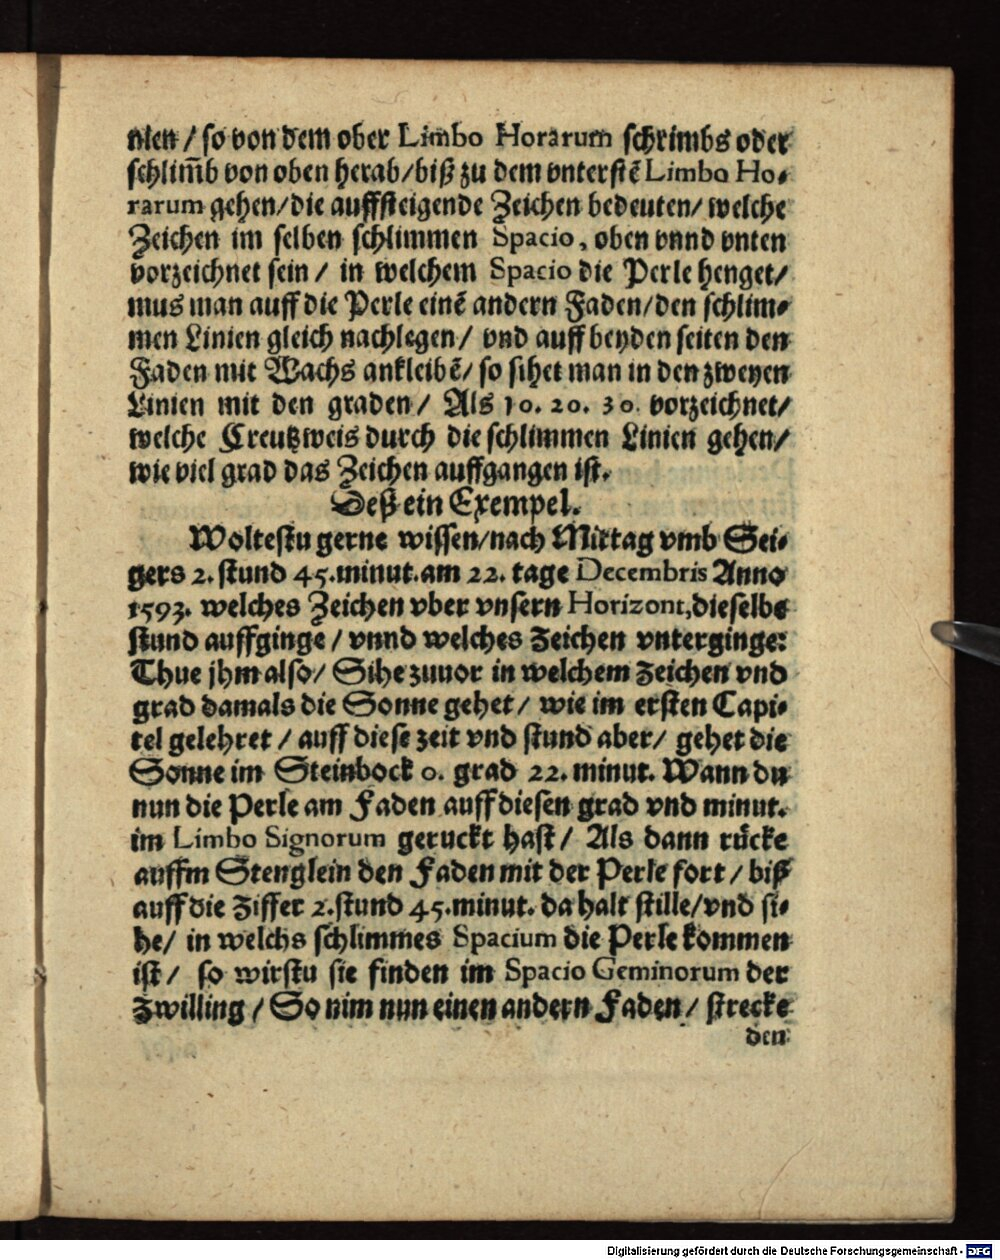 nien / so von dem ober Limbo Horarum schrimbs oder
schlim̃b von oben herab/biß zu dem vnterstẽ Limbo Ho⸗
rarum gehen/die auffsteigende Zeichen bedeuten/ welche
Zeichen im selben schlimmen Spacio, oben vnnd vnten
vorzeichnet sein / in welchem Spacio die Perle henget/
mus man auff die Perle einẽ andern Faden/den schlim⸗
men Linien gleich nachlegen/ vnd auff beyden seiten den
Faden mit Wachs ankleibẽ/ so sihet man in den zweyen
Linien mit den graden/ Als 10. 20. 30. vorzeichnet/
welche Creutzweis durch die schlimmen Linien gehen/
wie viel grad das Zeichen auffgangen ist.
Deß ein Exempel.
Woltestu gerne wissen/nach Mittag vmb Sei⸗
gers 2. stund 45.minut.am 22. tage Decembris Anno
1593. welches Zeichen vber vnsern Horizont,dieselbe
stund auffginge / vnnd welches Zeichen vnterginge:
Thue jhm also/ Sihe zuuor in welchem Zeichen vnd
grad damals die Sonne gehet/ wie im ersten Capi⸗
tel gelehret / auff diese zeit vnd stund aber/ gehet die
Sonne im Steinbock 0. grad 22. minut. Wann du
nun die Perle am Faden auff diesen grad vnd minut.
im Limbo Signorum geruckt hast/ Als dann rücke
auffm Stenglein den Faden mit der Perle fort / biß
auff die Ziffer 2.stund 45.minut. da halt stille/vnd si⸗
he/ in welchs schlimmes Spacium die Perle kommen
ist/ so wirstu sie finden im Spacio Geminorum der
Zwilling / So nim nun einen andern Faden/ strecke
den
Digitalisierung gefördert durch die Deutsche Forschungsgemeinschaft - DFG